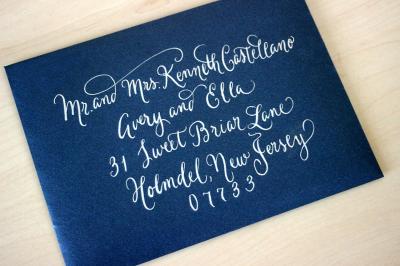 Mr. and Mrs. Kenneth Castellano
Avery and Ella
31 Sweet Briar Lane
Holmdel, New Jersey
07733